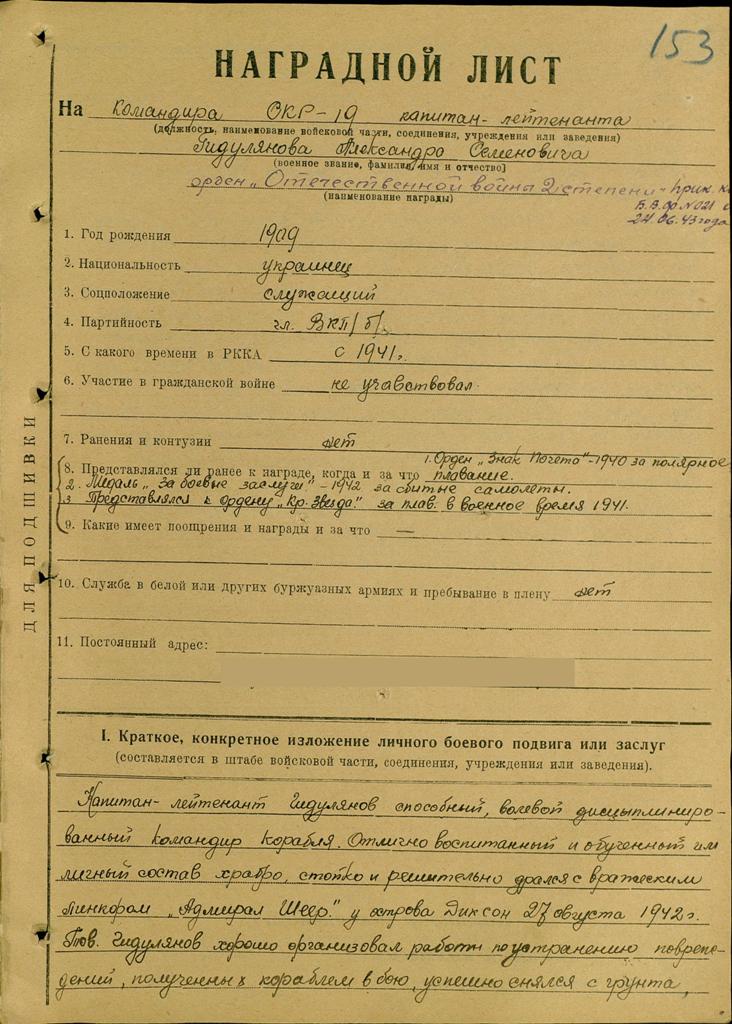 153
НАГРАДНОЙ ЛИСТ
На Командира СКР-19 капитан-лейтенанта
(должность, наименование войсковой части, соединения, учреждения или заведения)
Гидулянова Александра Семеновича
(военное звание, фамилия, имя и отчество)
орден „Отечественной войны 2 степени - прик. к
(наименование награды)
Б.В.Ф № 021
24.06.43 года
1. Год рождения 1909
2. Национальность украинец
3. Соцположение служащий
4. Партийность чл. ВКП/б/.
5. С какого времени в РККА с 1941г.
6. Участие в гражданской войне не учавствовал.
7. Ранения и контузии нет
1. Орден „Знак Почета" - 1940 за полярное
8. Представлялся ли ранее к награде, когда и за что плавание.
2. Медаль „за боевые заслуги" - 1942 за сбитые самолеты.
3. Представлялся к ордену „Кр. Звезда" за плав. в военное время 1941.
9. Какие имеет поощрения и награды и за что —
10. Служба в белой или других буржуазных армиях и пребывание в плену нет
11. Постоянный адрес:
ДЛЯ ПОДШИВКИ
I. Краткое, конкретное изложение личного боевого подвига или заслуг
(составляется в штабе войсковой части, соединения, учреждения или заведения).
Капитан-лейтенант Гидулянов способный, волевой дисцыплиниро-
ванный командир корабля. Отлично воспитанный и обученный им
личный состав храбро, стойко и решительно дрался с вражеским
линкором „Адмирал Шеер" у острова Диксон 27 августа 1942г.
Тов. Гидулянов хорошо организовал работы по устранению повреж-
дений, полученных кораблем в бою, успешно снялся с грунта,